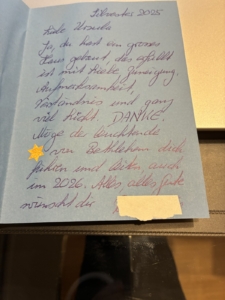 Silvester 2025
Liebe Ursula
Ja, du hast ein grosses
Haus gebaut, das gefüllt
ist mit Liebe, Zuneigung,
Aufmerksamkeit,
Verständnis und ganz
viel Licht. DANKE.
Möge der leuchtende
von Bethlehem dich
führen und leiten auch
im 2026. Alles, alles Gute
wünscht dir